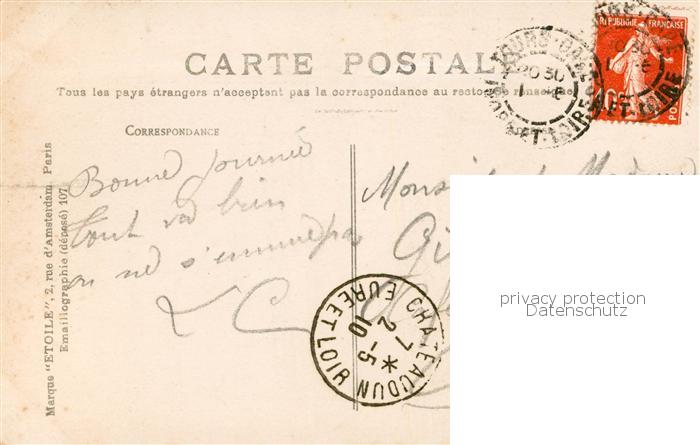 CARTE POSTALE
Tous les pays étrangers n'acceptent pas la correspondance au recto
CORRESPONDANCE
RÉPUBLIQUE FRANÇAISE
10
TOURS-GARE
INDRE-ET-LOIRE
20 30
Bonne journée
tout va bien
on ne s'ennuie pas
Monsieur et Madame
CHATEAUDUN
7 *
2 -5
10
EURE ET LOIR
Marque "ETOILE", 2, rue d'Amsterdam, Paris
Emaillographie (déposé) 107
privacy protection
Datenschutz